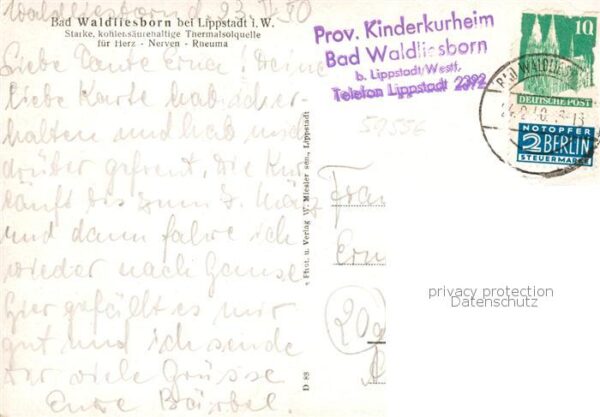 Waldliesborn d. 23. II. 50
Bad Waldliesborn bei Lippstadt i. W.
Starke, kohlensäurehaltige Thermalsolquelle
für Herz - Nerven - Rheuma
Liebe Tante Erna! Deine
liebe Karte hab ich er-
halten und hab mich
drüber gefreut. Die Kur
läuft bis zum 7. März
und dann fahre ich
wieder nach Hause
Hier gefällt es mir
gut und ich sende
Dir viele Grüsse
Eure Bärbel.
Phot. u. Verlag W. Miesler sen., Lippstadt
D 83
Prov. Kinderkurheim
Bad Waldliesborn
b. Lippstadt/Westf.
Telefon Lippstadt 2392
59556
10
DEUTSCHE POST
NOTOPFER
2 BERLIN
STEUERMARKE
Frau
(20
privacy protection
Datenschutz